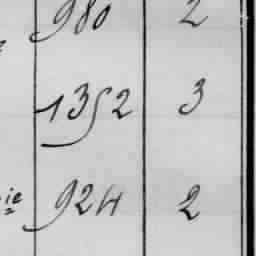 980 2
1352 3
ie 924 2